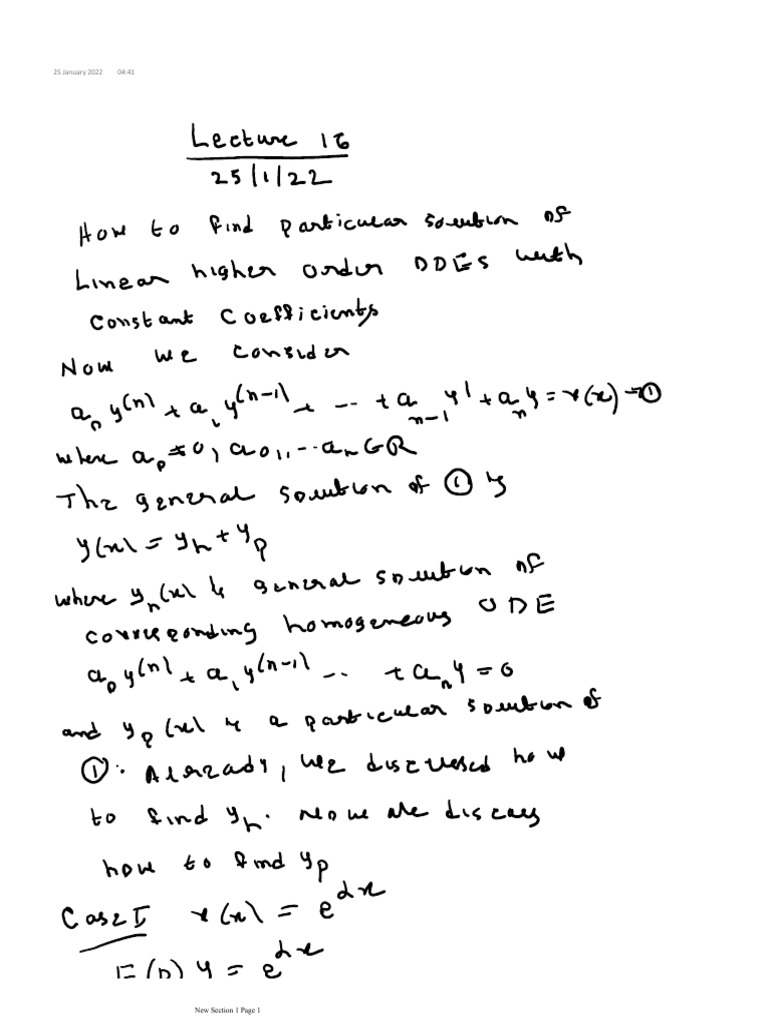 25 January 2022 04:41
Lecture 16
25/1/22
How to find particular solution of
Linear higher order ODEs with
constant coefficients
Now we consider
aₙ y⁽ⁿ⁾ + a₁ y⁽ⁿ⁻¹⁾ + ... + aₙ₋₁ y' + aₙ y = r(x) → ①
where a₀ ≠ 0, a₀,, ... aₙ ∈ ℝ
The general solution of ① is
y(x) = yₕ + yₚ
where yₕ(x) is general solution of
corresponding homogeneous ODE
a₀ y⁽ⁿ⁾ + a₁ y⁽ⁿ⁻¹⁾ ... + aₙ y = 0
and yₚ(x) is a particular solution of
①. Already, we discussed how
to find yₕ. Now we discuss
how to find yₚ
Case I r(x) = e^{αx}
F(D) y = e^{αx}
New Section 1 Page 1